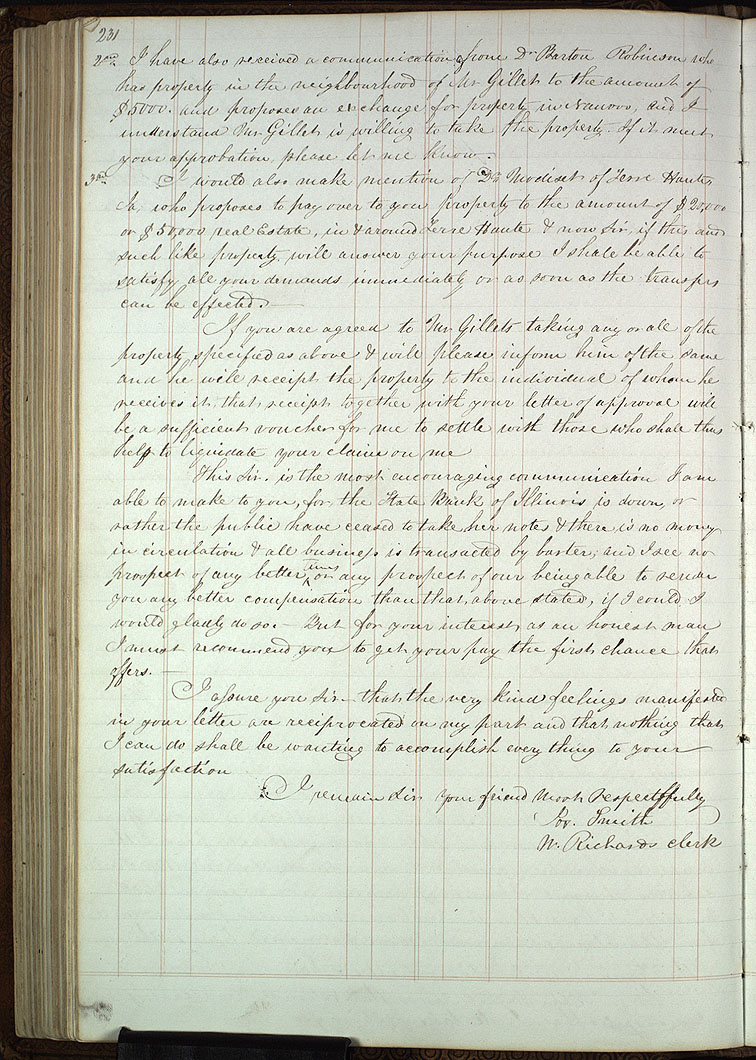 231
2nd I have also received a communication from Dr Barton Robinson who
has property in the neighbourhood of Mr Gillets to the amount of
$5000. and proposes an exchange for property in Nauvoo, and I
understand Mr Gillets is willing to take the property. If it meet
your approbation please let me know.
3rd I would also make mention of Dr Modiset of Terre Haute,
Ia, who proposes to pay over to you property to the amount of $20,000
or $50,000 real Estate, in & around Terre Haute & now Sir, if this and
such like property will answer your purpose I shall be able to
satisfy all your demands immediately or as soon as the transfers
can be effected.—
If you are agreed to Mr Gillets taking any or all of the
property specified as above & will please inform him of the same
and he will receipt the property to the individual of whom he
receives it, that receipt together with your letter of approval will
be a sufficient voucher for me to settle with those who shall thus
help to liquidate your claim on me
This Sir. is the most encouraging communication I am
able to make to you, for, the State Bank of Illinois is down, or
rather the public have ceased to take her notes & there is no money
in circulation & all business is transacted by barter; and I see no
prospect of any better times or any prospect of our being able to render
you any better compensation than that above stated, if I could I
would gladly do so.— But for your interest, as an honest man
I must recommend you to get your pay the first chance that
offers.—
I assure you Sir— that the very kind feelings manifested
in your letter are reciprocated on my part and that nothing that
I can do shall be wanting to accomplish every thing to your
satisfaction
I remain Sir Your friend Most Respectfully
Jos. Smith
W. Richards clerk